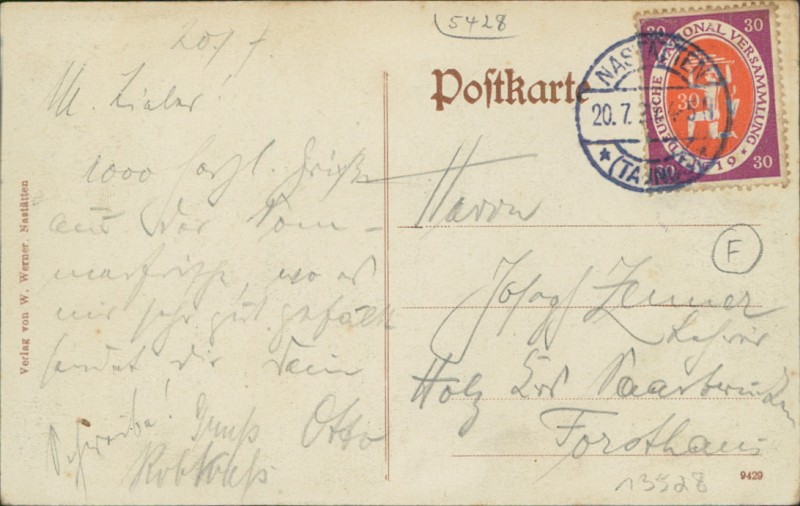 5428
20/7
M. Lieber
1000 herzl. Grüße
aus der Som-
merfrische, wo es
mir sehr gut gefällt
sendet dir Dein
Otto
Schreibe!
Gruß
Verlag von W. Werner, Nastätten
Postkarte
NASTÄTTEN
20. 7.
(TAUNUS)
DEUTSCHE NATIONAL VERSAMMLUNG 1919
30
30
30
30
Herrn
Josef Zenner
Lehrer
Holz bei Saarbrücken
Forsthaus
F
13528
9429